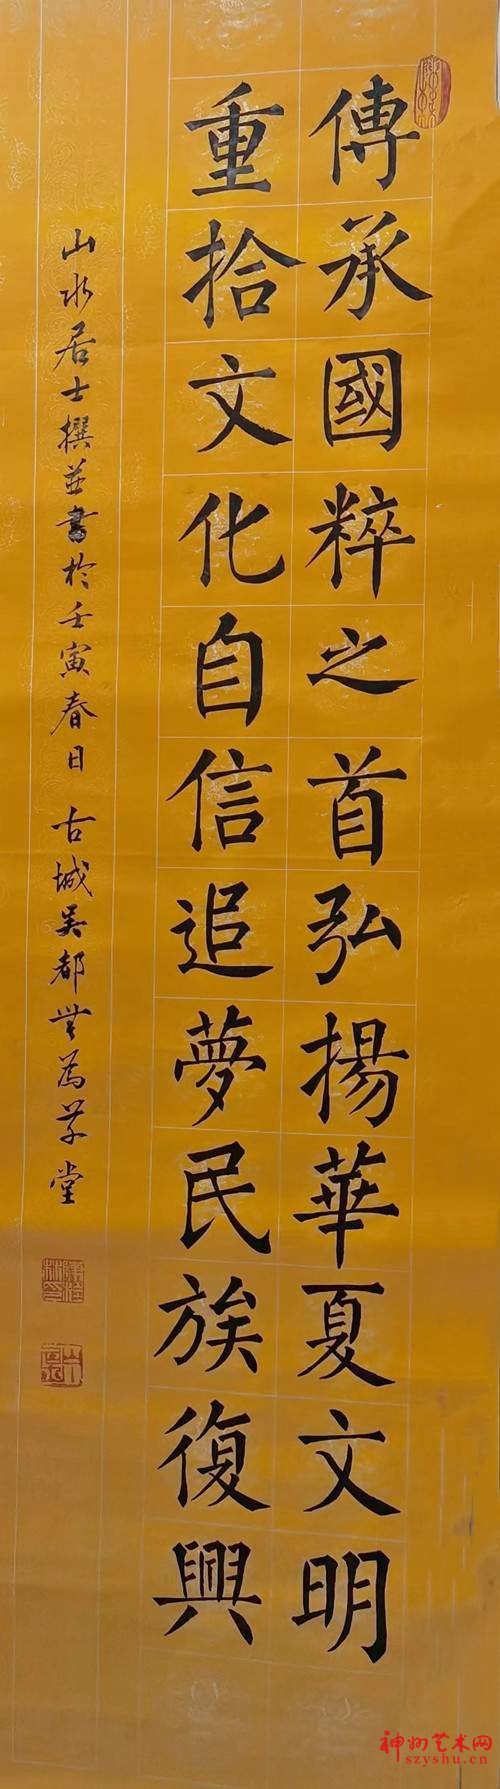 傳承國粹之首弘揚華夏文明
重拾文化自信追夢民族復興
山水居士撰並書於壬寅春日 古城吴都無為草堂
神州艺术网
szyshu.cn